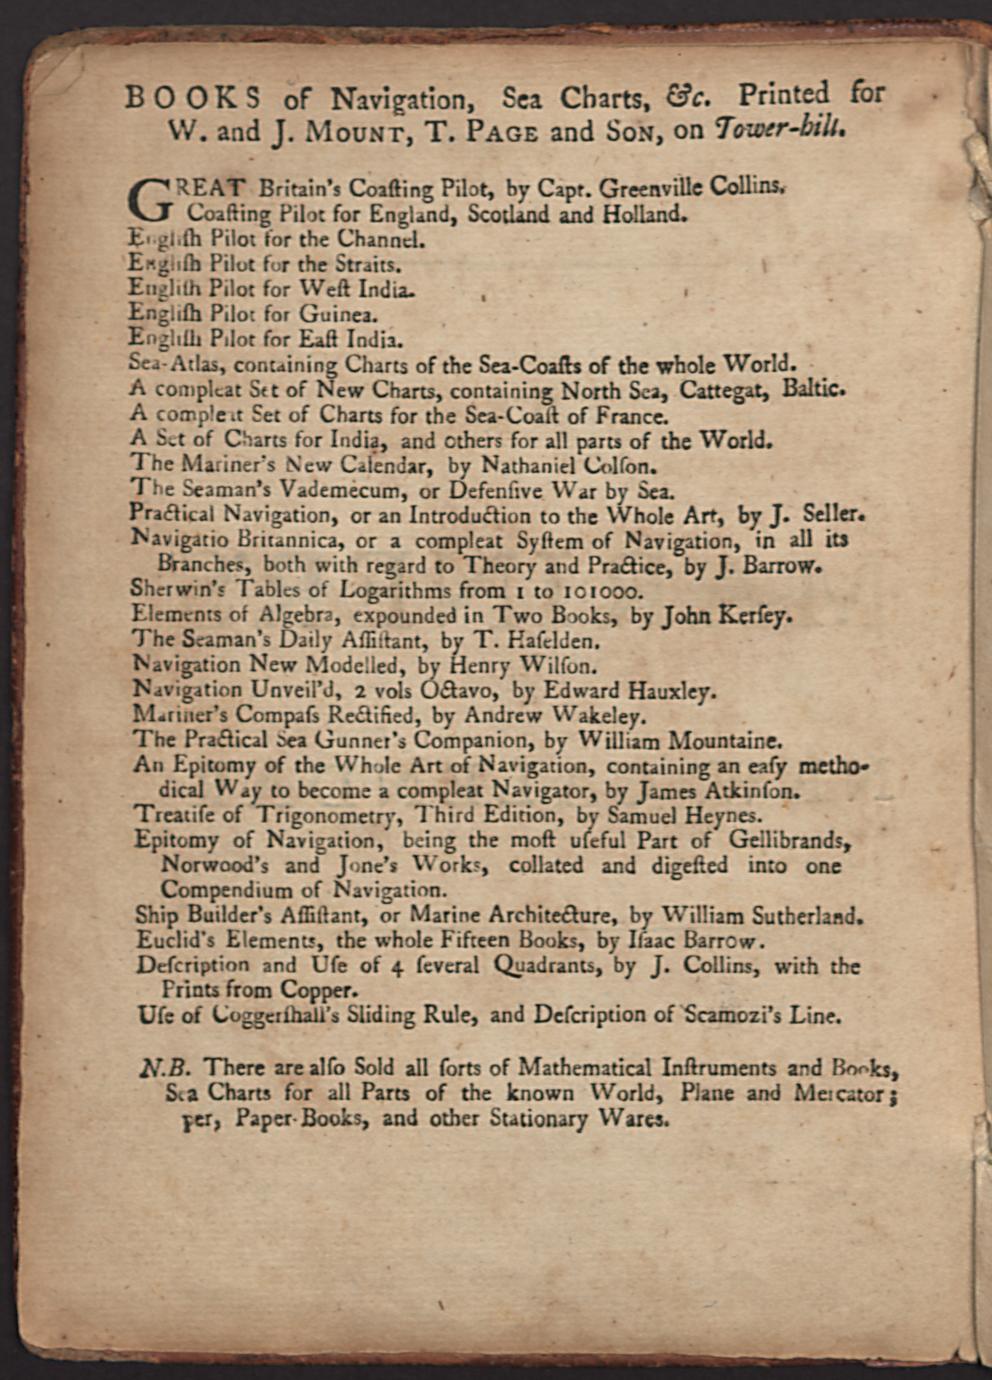 BOOKS of Navigation, Sea Charts, &c. Printed for
W. and J. MOUNT, T. PAGE and SON, on Tower-hill.
GREAT Britain's Coaſting Pilot, by Capt. Greenville Collins.
Coaſting Pilot for England, Scotland and Holland.
Engliſh Pilot for the Channel.
Engliſh Pilot for the Straits.
Engliſh Pilot for Weſt India.
Engliſh Pilot for Guinea.
Engliſh Pilot for Eaſt India.
Sea-Atlas, containing Charts of the Sea-Coaſts of the whole World.
A compleat Set of New Charts, containing North Sea, Cattegat, Baltic.
A compleat Set of Charts for the Sea-Coaſt of France.
A Set of Charts for India, and others for all parts of the World.
The Mariner's New Calendar, by Nathaniel Colſon.
The Seaman's Vademecum, or Defenſive War by Sea.
Practical Navigation, or an Introduction to the Whole Art, by J. Seller.
Navigatio Britannica, or a compleat Syſtem of Navigation, in all its
Branches, both with regard to Theory and Practice, by J. Barrow.
Sherwin's Tables of Logarithms from 1 to 101000.
Elements of Algebra, expounded in Two Books, by John Kerſey.
The Seaman's Daily Aſſiſtant, by T. Haſelden.
Navigation New Modelled, by Henry Wilſon.
Navigation Unveil'd, 2 vols Octavo, by Edward Hauxley.
Mariner's Compaſs Rectified, by Andrew Wakeley.
The Practical Sea Gunner's Companion, by William Mountaine.
An Epitomy of the Whole Art of Navigation, containing an eaſy metho-
dical Way to become a compleat Navigator, by James Atkinſon.
Treatiſe of Trigonometry, Third Edition, by Samuel Heynes.
Epitomy of Navigation, being the moſt uſeful Part of Gellibrands,
Norwood's and Jone's Works, collated and digeſted into one
Compendium of Navigation.
Ship Builder's Aſſiſtant, or Marine Architecture, by William Sutherland.
Euclid's Elements, the whole Fifteen Books, by Iſaac Barrow.
Deſcription and Uſe of 4 ſeveral Quadrants, by J. Collins, with the
Prints from Copper.
Uſe of Coggerſhall's Sliding Rule, and Deſcription of Scamozi's Line.
N.B. There are alſo Sold all ſorts of Mathematical Inſtruments and Books,
Sea Charts for all Parts of the known World, Plane and Mercator;
per, Paper-Books, and other Stationary Wares.